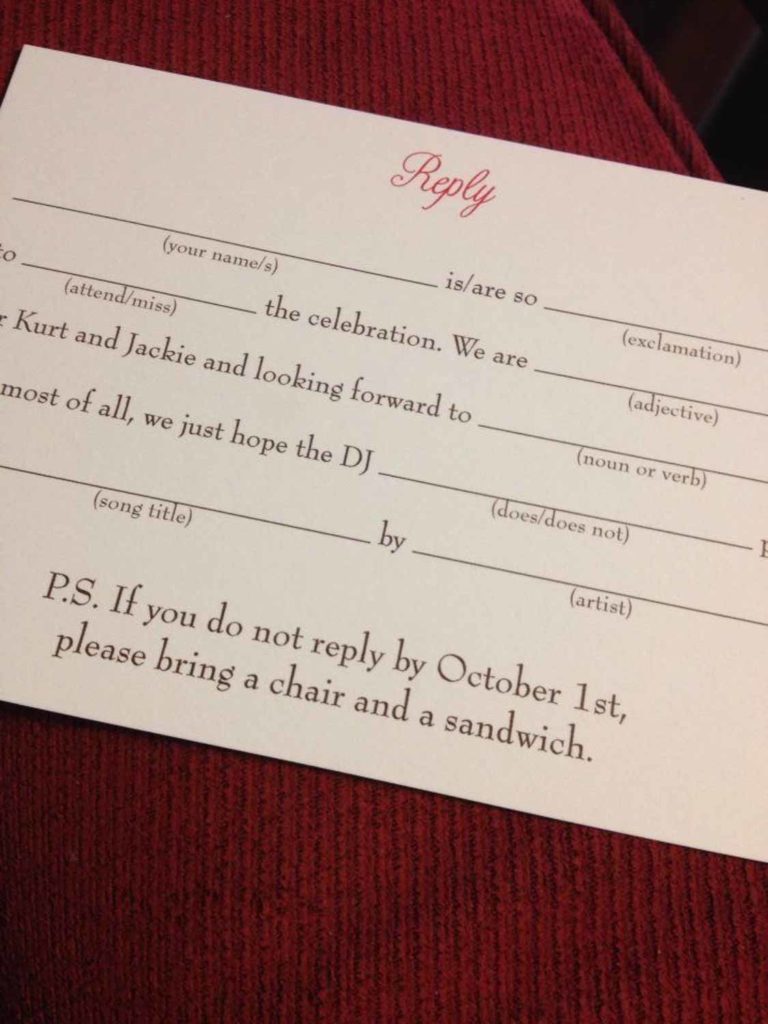 Reply
____ is/are so ____
(your name/s) (exclamation)
to ____ the celebration. We are ____
(attend/miss) (adjective)
Kurt and Jackie and looking forward to ____
(noun or verb)
most of all, we just hope the DJ ____
(does/does not)
____ by ____
(song title) (artist)
P.S. If you do not reply by October 1st,
please bring a chair and a sandwich.